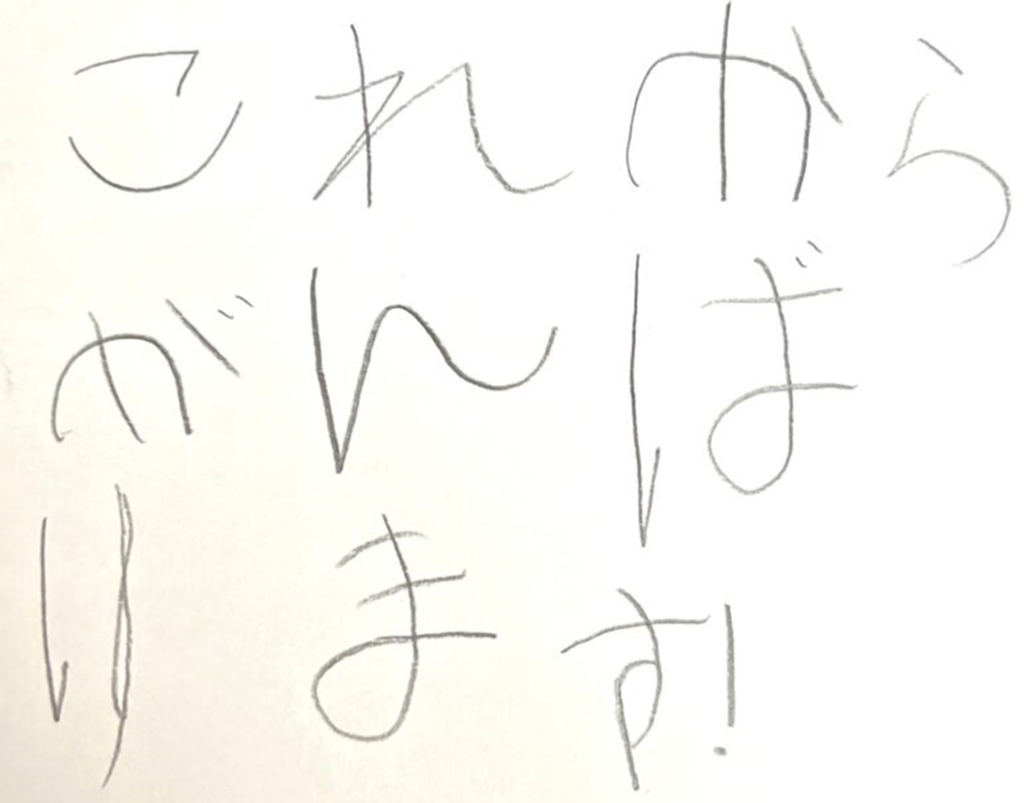 これから
がんば
ります!